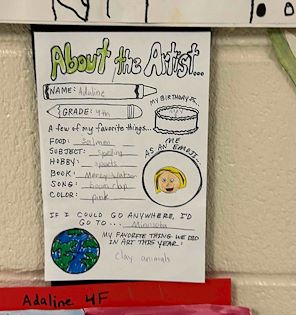 About the Artist...
NAME: Adaline
GRADE: 4th
MY BIRTHDAY IS...
A few of my favorite things...
FOOD: Salmon
SUBJECT: Spelling
HOBBY: sports
BOOK: Mercy Watson
SONG: boom clap
COLOR: pink
ME
AS AN EMOJI...
IF I COULD GO ANYWHERE, I'D
GO TO... Minisota
MY FAVORITE THING WE DID
IN ART THIS YEAR:
clay animals
Adaline 4F